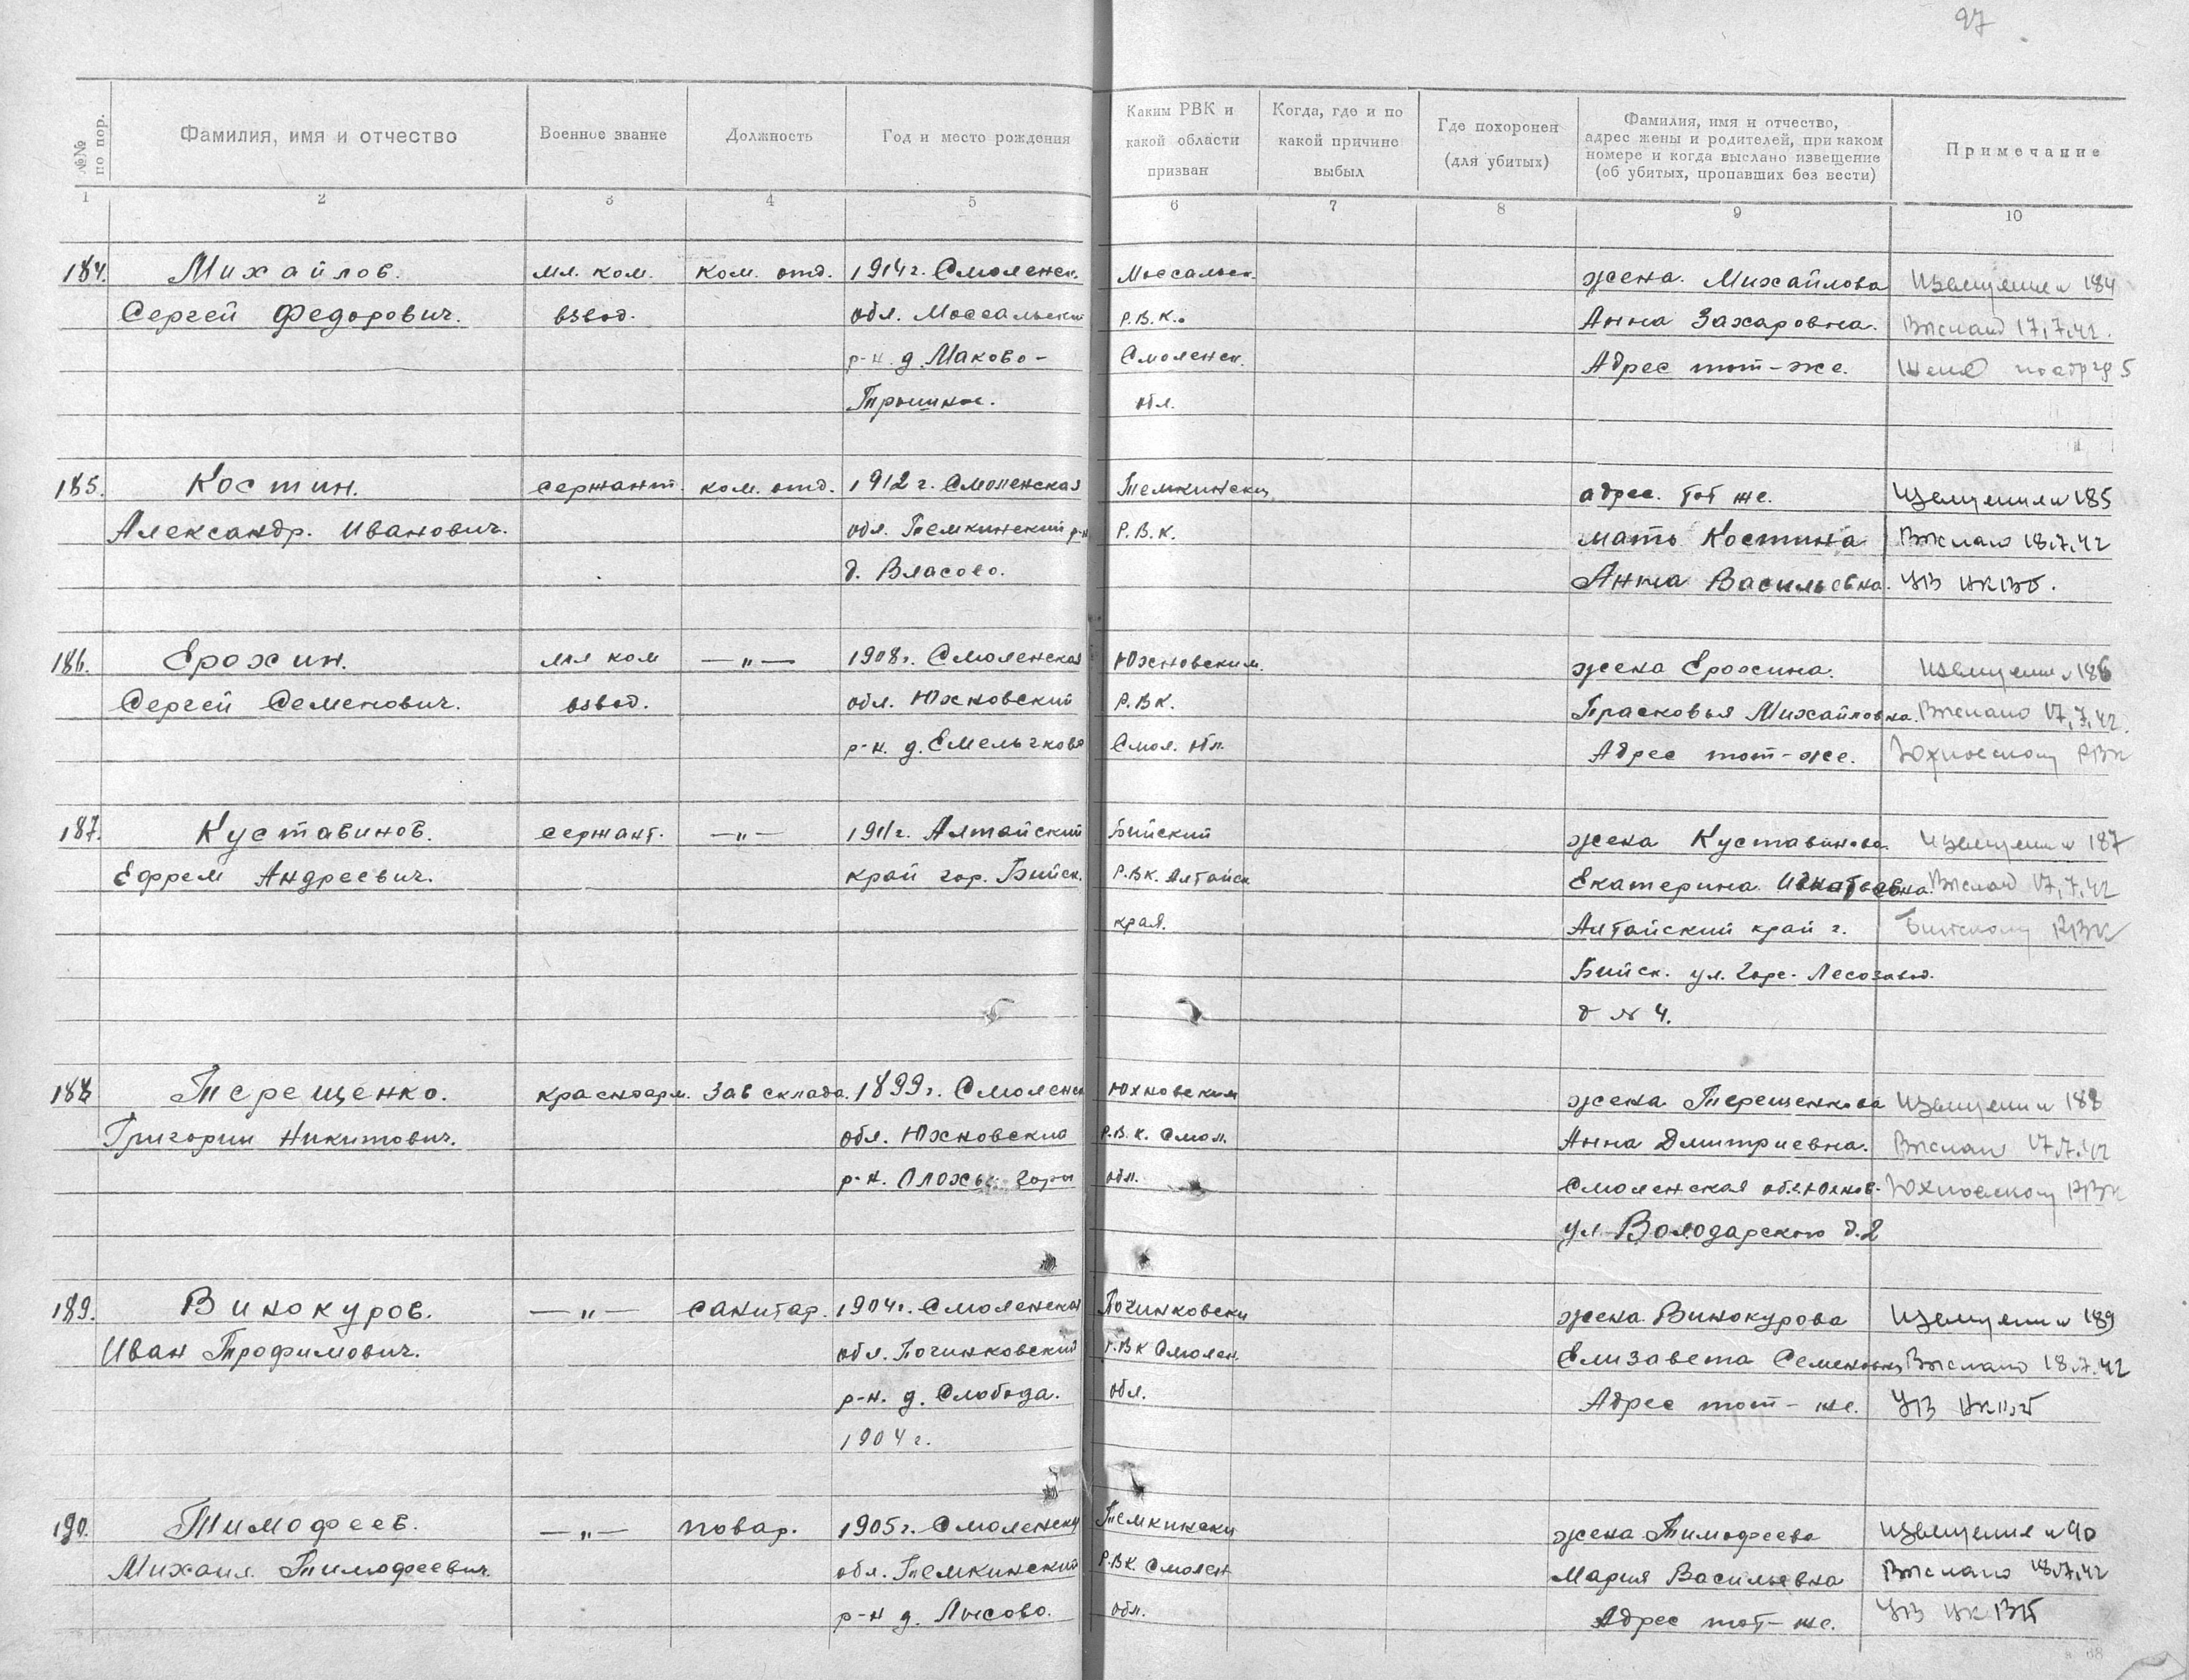 97
№№ по пор.
Фамилия, имя и отчество
Военное звание
Должность
Год и место рождения
Каким РВК и какой области призван
Когда, где и по какой причине выбыл
Где похоронен (для убитых)
Фамилия, имя и отчество, адрес жены и родителей, при каком номере и когда выслано извещение (об убитых, пропавших без вести)
Примечание
1 2 3 4 5 6 7 8 9 10
184. Михайлов. мл. ком. ком. отд. 1914 г. Смоленск. Моссальск. жена. Михайлова 184
Сергей Федорович. взвод. обл. Моссальский Р.В.К. Анна Захаровна. Выслано 17.7.42.
р-н. д. Маково- Смоленск. Адрес тот-же.
обл.
185. Костин. сержант. ком. отд. 1912 г. Смоленская Темкински адрес. тот же. 185
Александр. Иванович. обл. Темкинский р-н Р.В.К. мать Костина Выслано 18.7.42
д. Власово. Анна Васильевна.
186. Ерохин. мл ком —"— 1908 г. Смоленская Юхновским. жена Ерохина. 186
Сергей Семенович. взвод. обл. Юхновский Р.ВК. Прасковья Михайловна. Выслано 17.7.42.
р-н. д. Емельчково Смол. обл. Адрес тот-же. Юхновскому РВК
187. Куставинов. сержант. —"— 1911 г. Алтайский Бийский жена Куставинова. 187
Ефрем Андреевич. край гор. Бийск. Р.ВК. Алтайск Екатерина Игнатьевна. Выслано 17.7.42
края. Алтайский край г. Бийскому РВК
Бийск. ул. Лесозавод.
д № 4.
188 Терещенко. красноарм. Зав склада. 1899 г. Смоленск Юхновским жена Терещенкова 188
Григории Никитович. обл. Юхновский Р.В.К. Смол. Анна Дмитриевна. Выслано 17.7.42
р-н. горы обл. Смоленская обл. Юхнов. Юхновскому РВК
ул Володарского д. 2
189. Винокуров. —"— санитар. 1904 г. Смоленская Починковски жена Винокурова 189
Иван Трофимович. обл. Починковский Р.ВК Смолен. Елизавета Семеновна Выслано 18.7.42
р-н. д. Слобода. обл. Адрес тот- же.
1904 г.
190. Тимофеев. —"— повар. 1905 г. Смоленски Темкински жена Тимофеева 90
Михаил Тимофеевич. обл. Темкинский Р.ВК. Смолен Мария Васильевна Выслано 18.7.42
р-н д. Лысово. обл. Адрес тот- же.